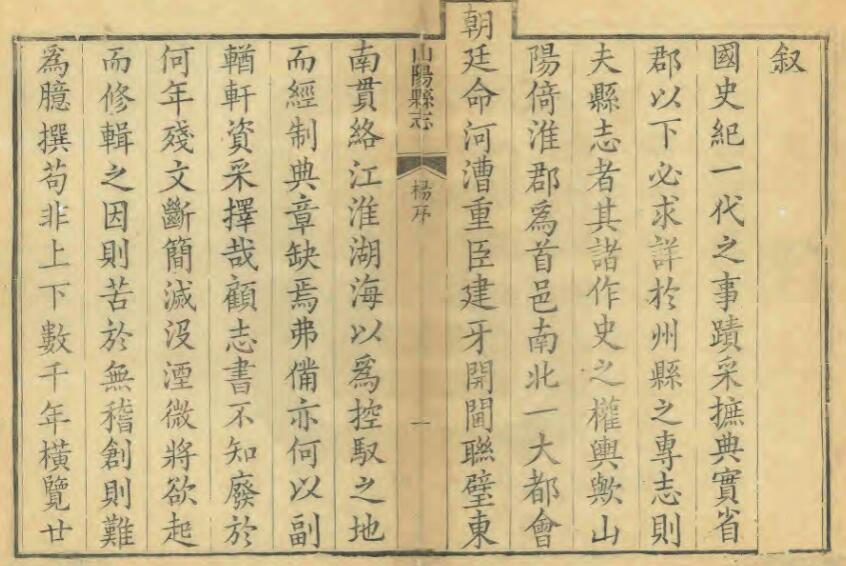 叙
國史紀一代之事蹟采摭典實省
郡以下必求詳於州縣之專志則
夫縣志者其諸作史之權輿歟山
陽倚淮郡為首邑南北一大都會
朝廷命河漕重臣建牙開閫聯璧東
山陽縣志
楊序
一
南貫絡江淮湖海以為控馭之地
而經制典章缺焉弗備亦何以副
輶軒資采擇哉顧志書不知廢於
何年殘文斷簡滅没湮微將欲起
而修輯之因則苦於無稽創則難
為臆撰苟非上下數千年橫覽廿